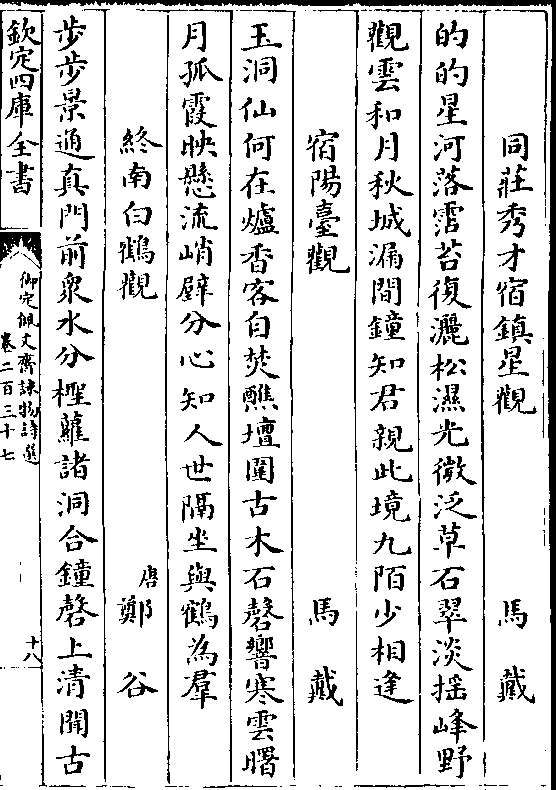 同莊秀才宿鎮星觀 馬戴
的的星河落霑苔復灑松濕光微泛草石翠淡搖峰野
觀雲和月秋城漏間鐘知君親此境九陌少相逢
宿陽臺觀 馬戴
玉洞仙何在爐香客自焚醮壇圍古木石磬響寒雲曙
月孤霞映懸流峭壁分心知人世隔坐與鶴為羣
終南白鶴觀 唐 鄭谷
步步景通真門前衆水分檉蘿諸洞合鐘磬上清聞古
欽定四庫全書
御定佩文齋詠物詩選
卷二百三十七
十八